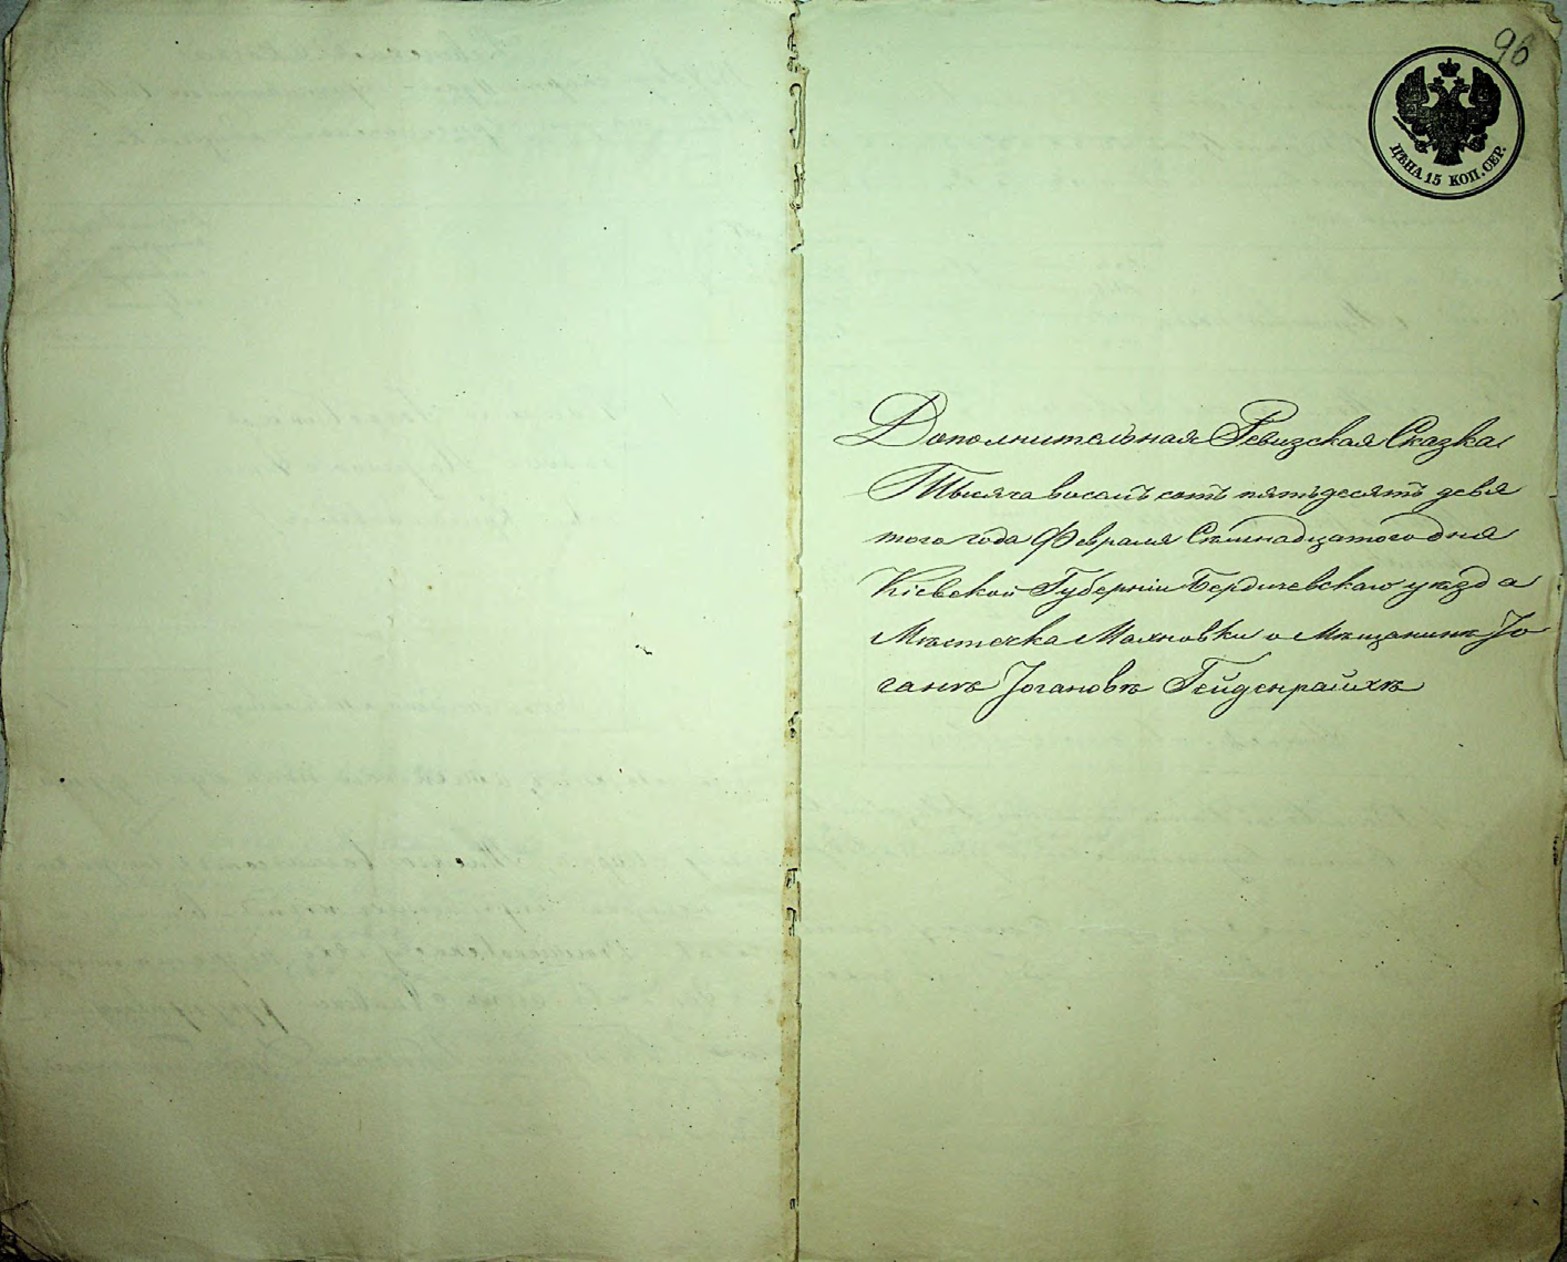 96
ЦѢНА 15 КОП. СЕР.
Дополнительная Ревизская Сказка
Тысяча восемъ сотъ пятьдесятъ девя
того года Февраля Семнадцатого дня
Кіевской Губерніи Бердичевскаго уѣзда
Мѣстечка Махновки о Мѣщанинѣ Іо
ганѣ Іогановѣ Гейденрайхѣ